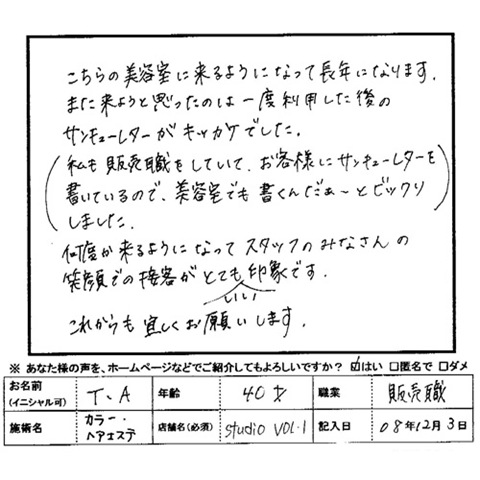 こちらの美容室に来るようになって長年になります。
また来ようと思ったのは一度利用した後の
サンキューレターがキッカケでした。
(私も販売職をしていて、お客様にサンキューレターを
書いているので、美容室でも書くんだぁ〜とビックリ
しました。)
何度か来るようになってスタッフのみなさんの
笑顔での接客がとてもいい印象です。
これからも宜しくお願いします。
※ あなた様の声を、ホームページなどでご紹介してもよろしいですか? ☑はい □匿名で □ダメ
お名前(イニシャル可) T.A 年齢 40才 職業 販売職
施術名 カラー・ヘアエステ 店舗名(必須) studio VOL.1 記入日 08年12月3日